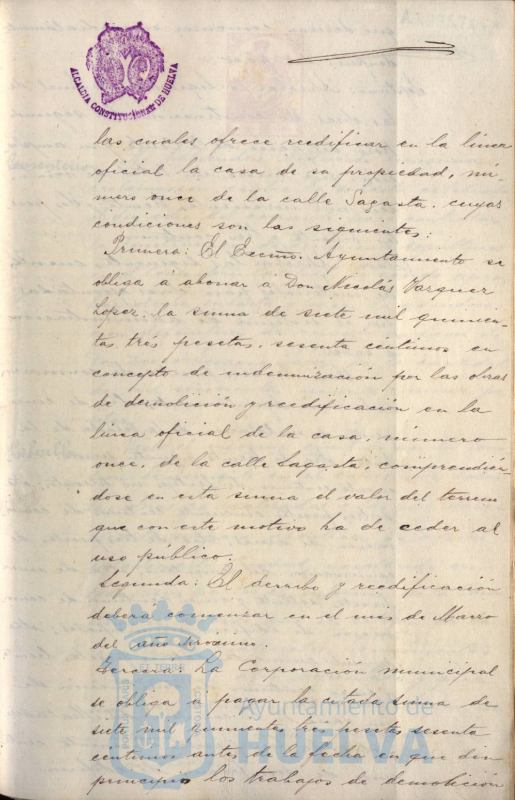 ALCALDIA CONSTITUCIONAL DE HUELVA
las cuales ofrece reedificar en la linea
oficial la casa de su propiedad, nú-
mero once de la calle Sagasta, cuyas
condiciones son las siguientes:
Primera: El Excmo. Ayuntamiento se
obliga á abonar á Don Nicolás Vazquez
Lopez, la suma de siete mil quinien-
tas trés pesetas, sesenta céntimos en
concepto de indemnización por las obras
de demolición y reedificación en la
linea oficial de la casa, número
once, de la calle Sagasta, comprendién-
dose en esta suma el valor del terreno
que con este motivo ha de ceder al
uso público.
Segunda: El derribo y reedificación
deberá comenzar en el mes de Marzo
del año próximo.
Tercera: La Corporación municipal
se obliga á pagar la citada suma de
siete mil quinientas trés pesetas sesenta
centimos antes de la fecha en que dén
principio los trabajos de demolición
Ayuntamiento de
HUELVA